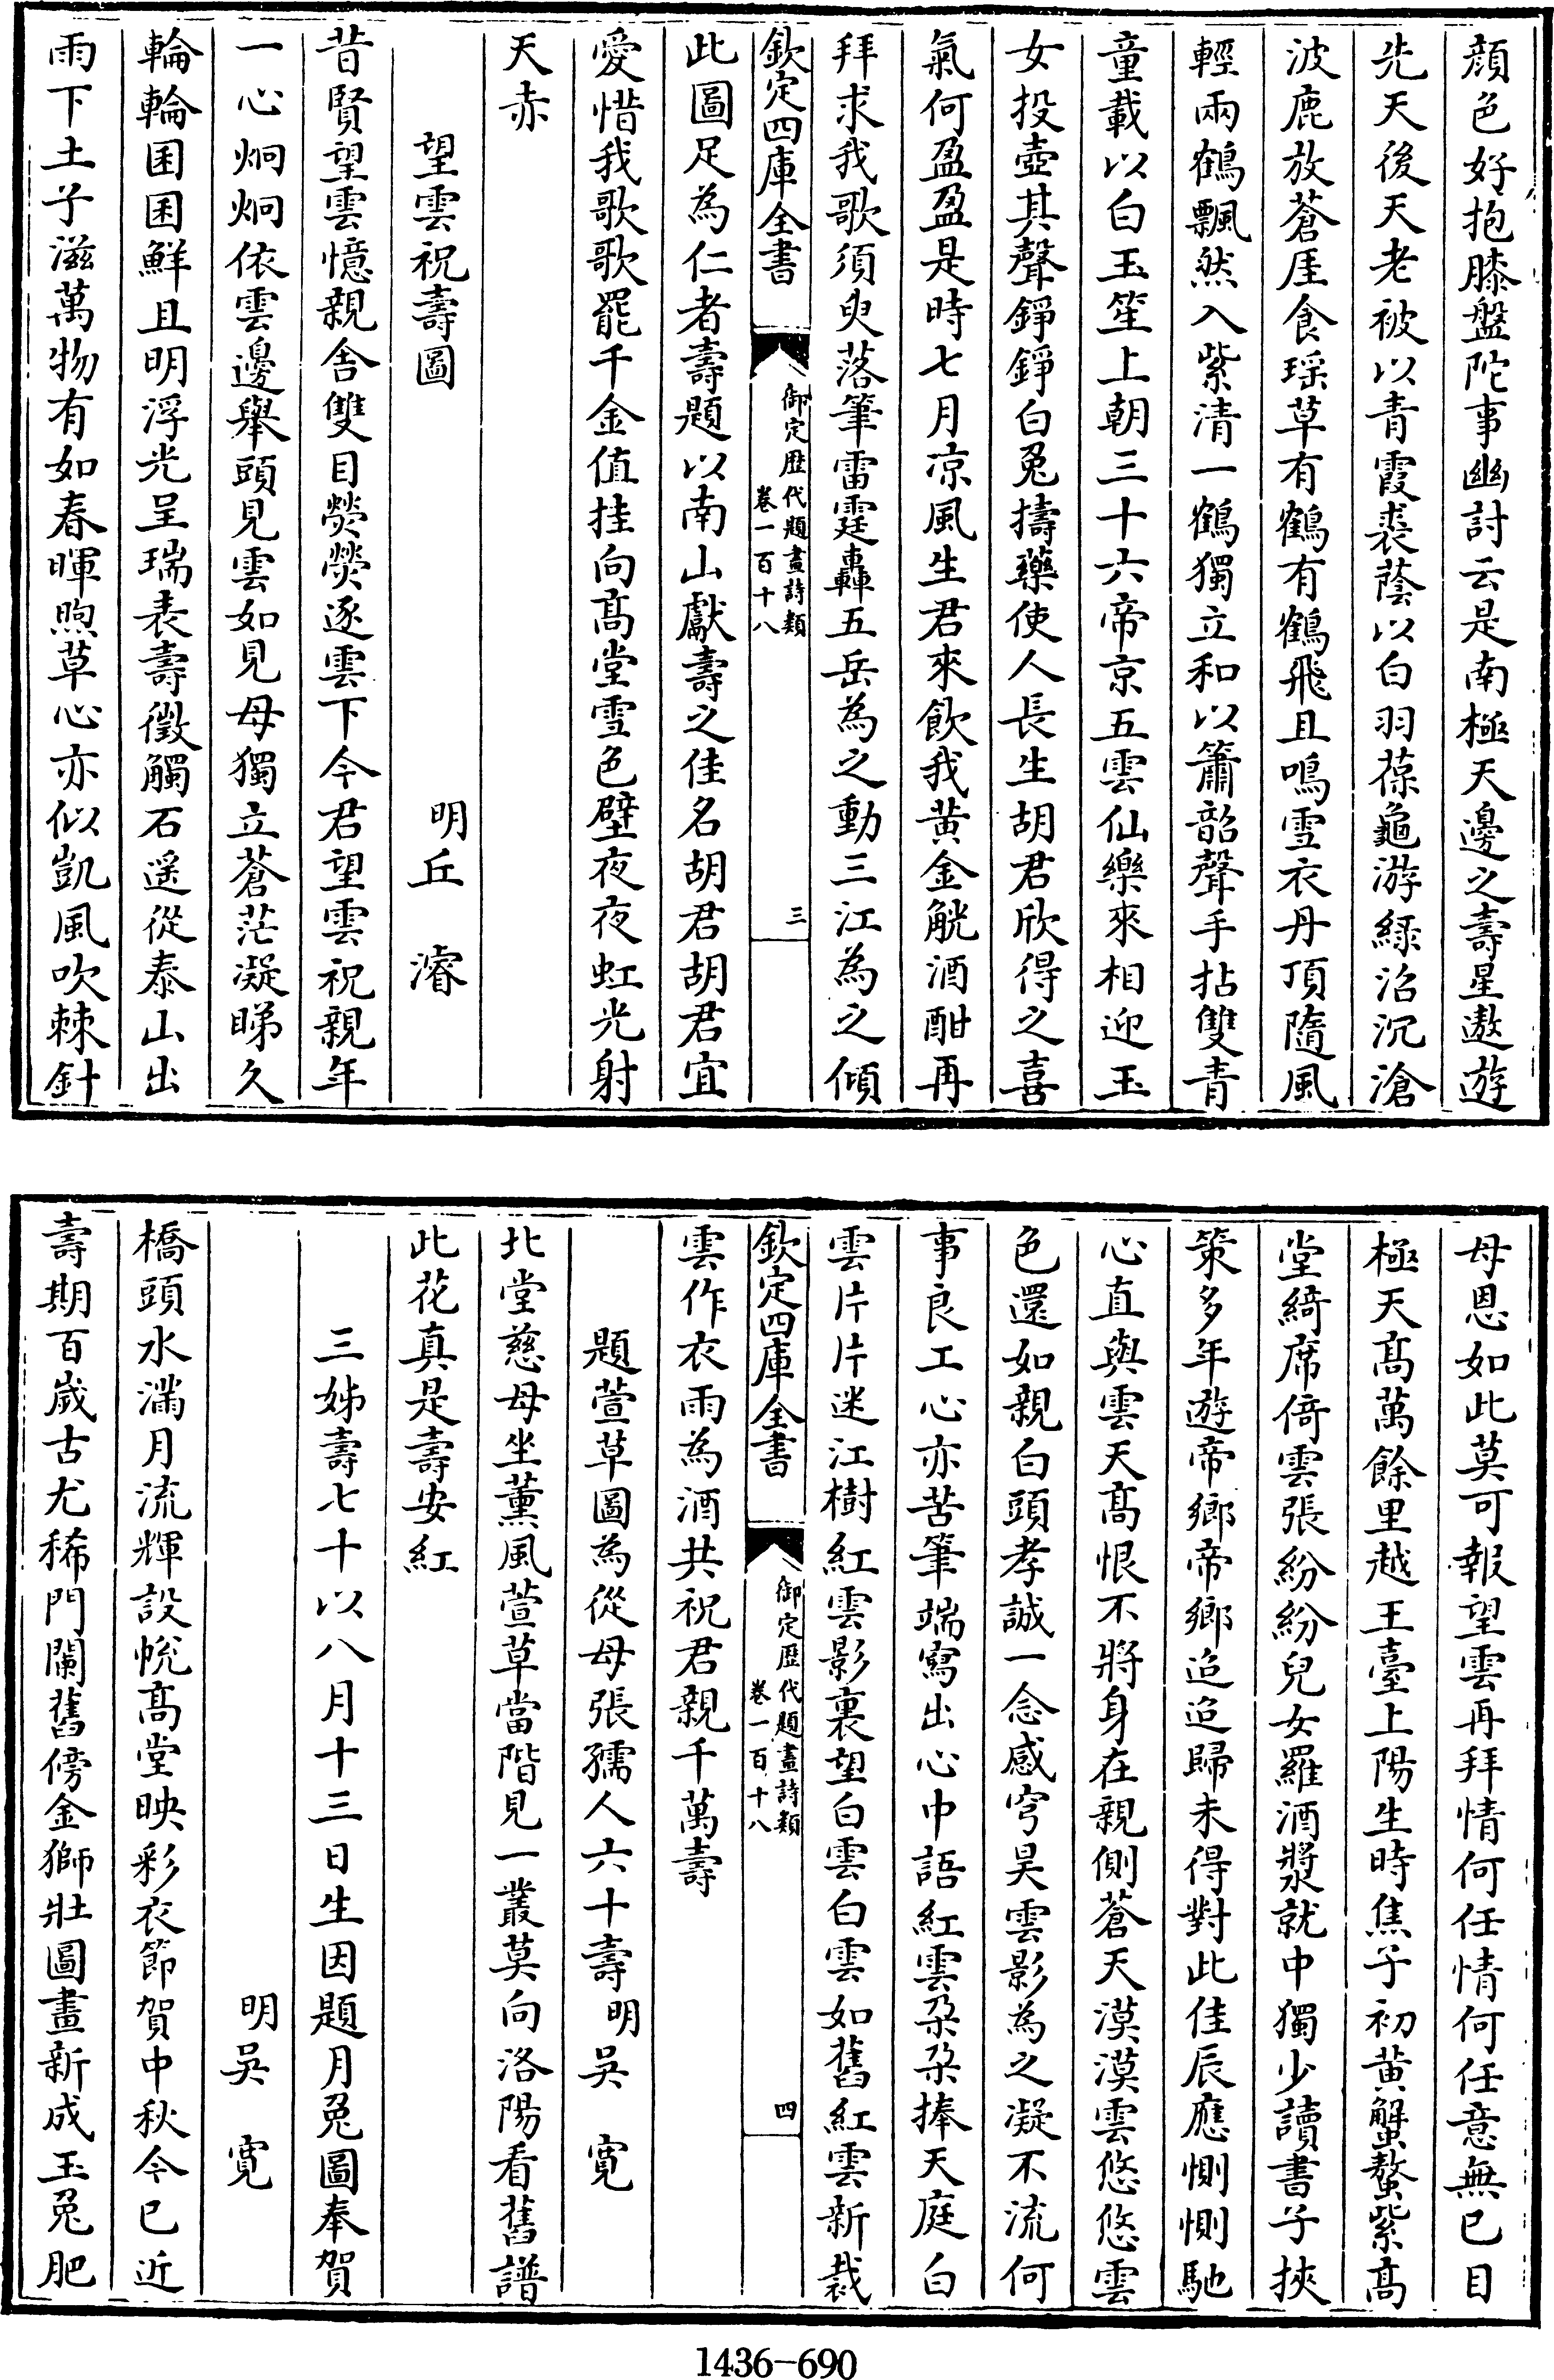 顔色好抱膝盤陀事幽討云是南極天邊之壽星遨遊
先天後天老被以青霞裘蔭以白羽葆龜游緑沼沉滄
波鹿放蒼厓食瑶草有鶴有鶴飛且鳴雪衣丹頂隨風
輕兩鶴飄然入紫清一鶴獨立和以簫韶聲手拈雙青
童載以白玉笙上朝三十六帝京五雲仙樂來相迎玉
女投壺其聲錚錚白兔擣藥使人長生胡君欣得之喜
氣何盈盈是時七月凉風生君來飲我黄金觥酒酣再
拜求我歌須臾落筆雷霆轟五岳為之動三江為之傾
欽定四庫全書
御定歴代題畫詩類
卷一百十八
三
此圖足為仁者壽題以南山獻壽之佳名胡君胡君宜
愛惜我歌歌罷千金值挂向髙堂雪色壁夜夜虹光射
天赤
望雲祝壽圖
明丘濬
昔賢望雲憶親舎雙目熒熒逐雲下今君望雲祝親年
一心炯炯依雲邊舉頭見雲如見母獨立蒼茫凝睇久
輪輪囷囷鮮且明浮光呈瑞表壽徴觸石遥從泰山出
雨下土子滋萬物有如春暉煦草心亦似凱風吹棘針
母恩如此莫可報望雲再拜情何任情何任意無已目
極天髙萬餘里越王臺上陽生時焦子初黄蟹螯紫髙
堂綺席倚雲張紛紛兒女羅酒漿就中獨少讀書子挾
策多年遊帝鄉帝鄉迢迢歸未得對此佳辰應惻惻馳
心直與雲天髙恨不將身在親側蒼天漠漠雲悠悠雲
色還如親白頭孝誠一念感穹昊雲影為之凝不流何
事良工心亦苦筆端寫出心中語紅雲朶朶捧天庭白
雲片片迷江樹紅雲影裏望白雲白雲如舊紅雲新裁
欽定四庫全書
御定歴代題畫詩類
卷一百十八
四
雲作衣雨為酒共祝君親千萬壽
題萱草圖為從母張孺人六十壽明吳寛
北堂慈母坐薰風萱草當階見一叢莫向洛陽看舊譜
此花真是壽安紅
三姊壽七十以八月十三日生因題月兔圖奉賀
明吳寛
橋頭水滿月流輝設帨髙堂映彩衣節賀中秋今已近
壽期百歲古尤稀門闌舊傍金獅壯圖畫新成玉兔肥
1436-690